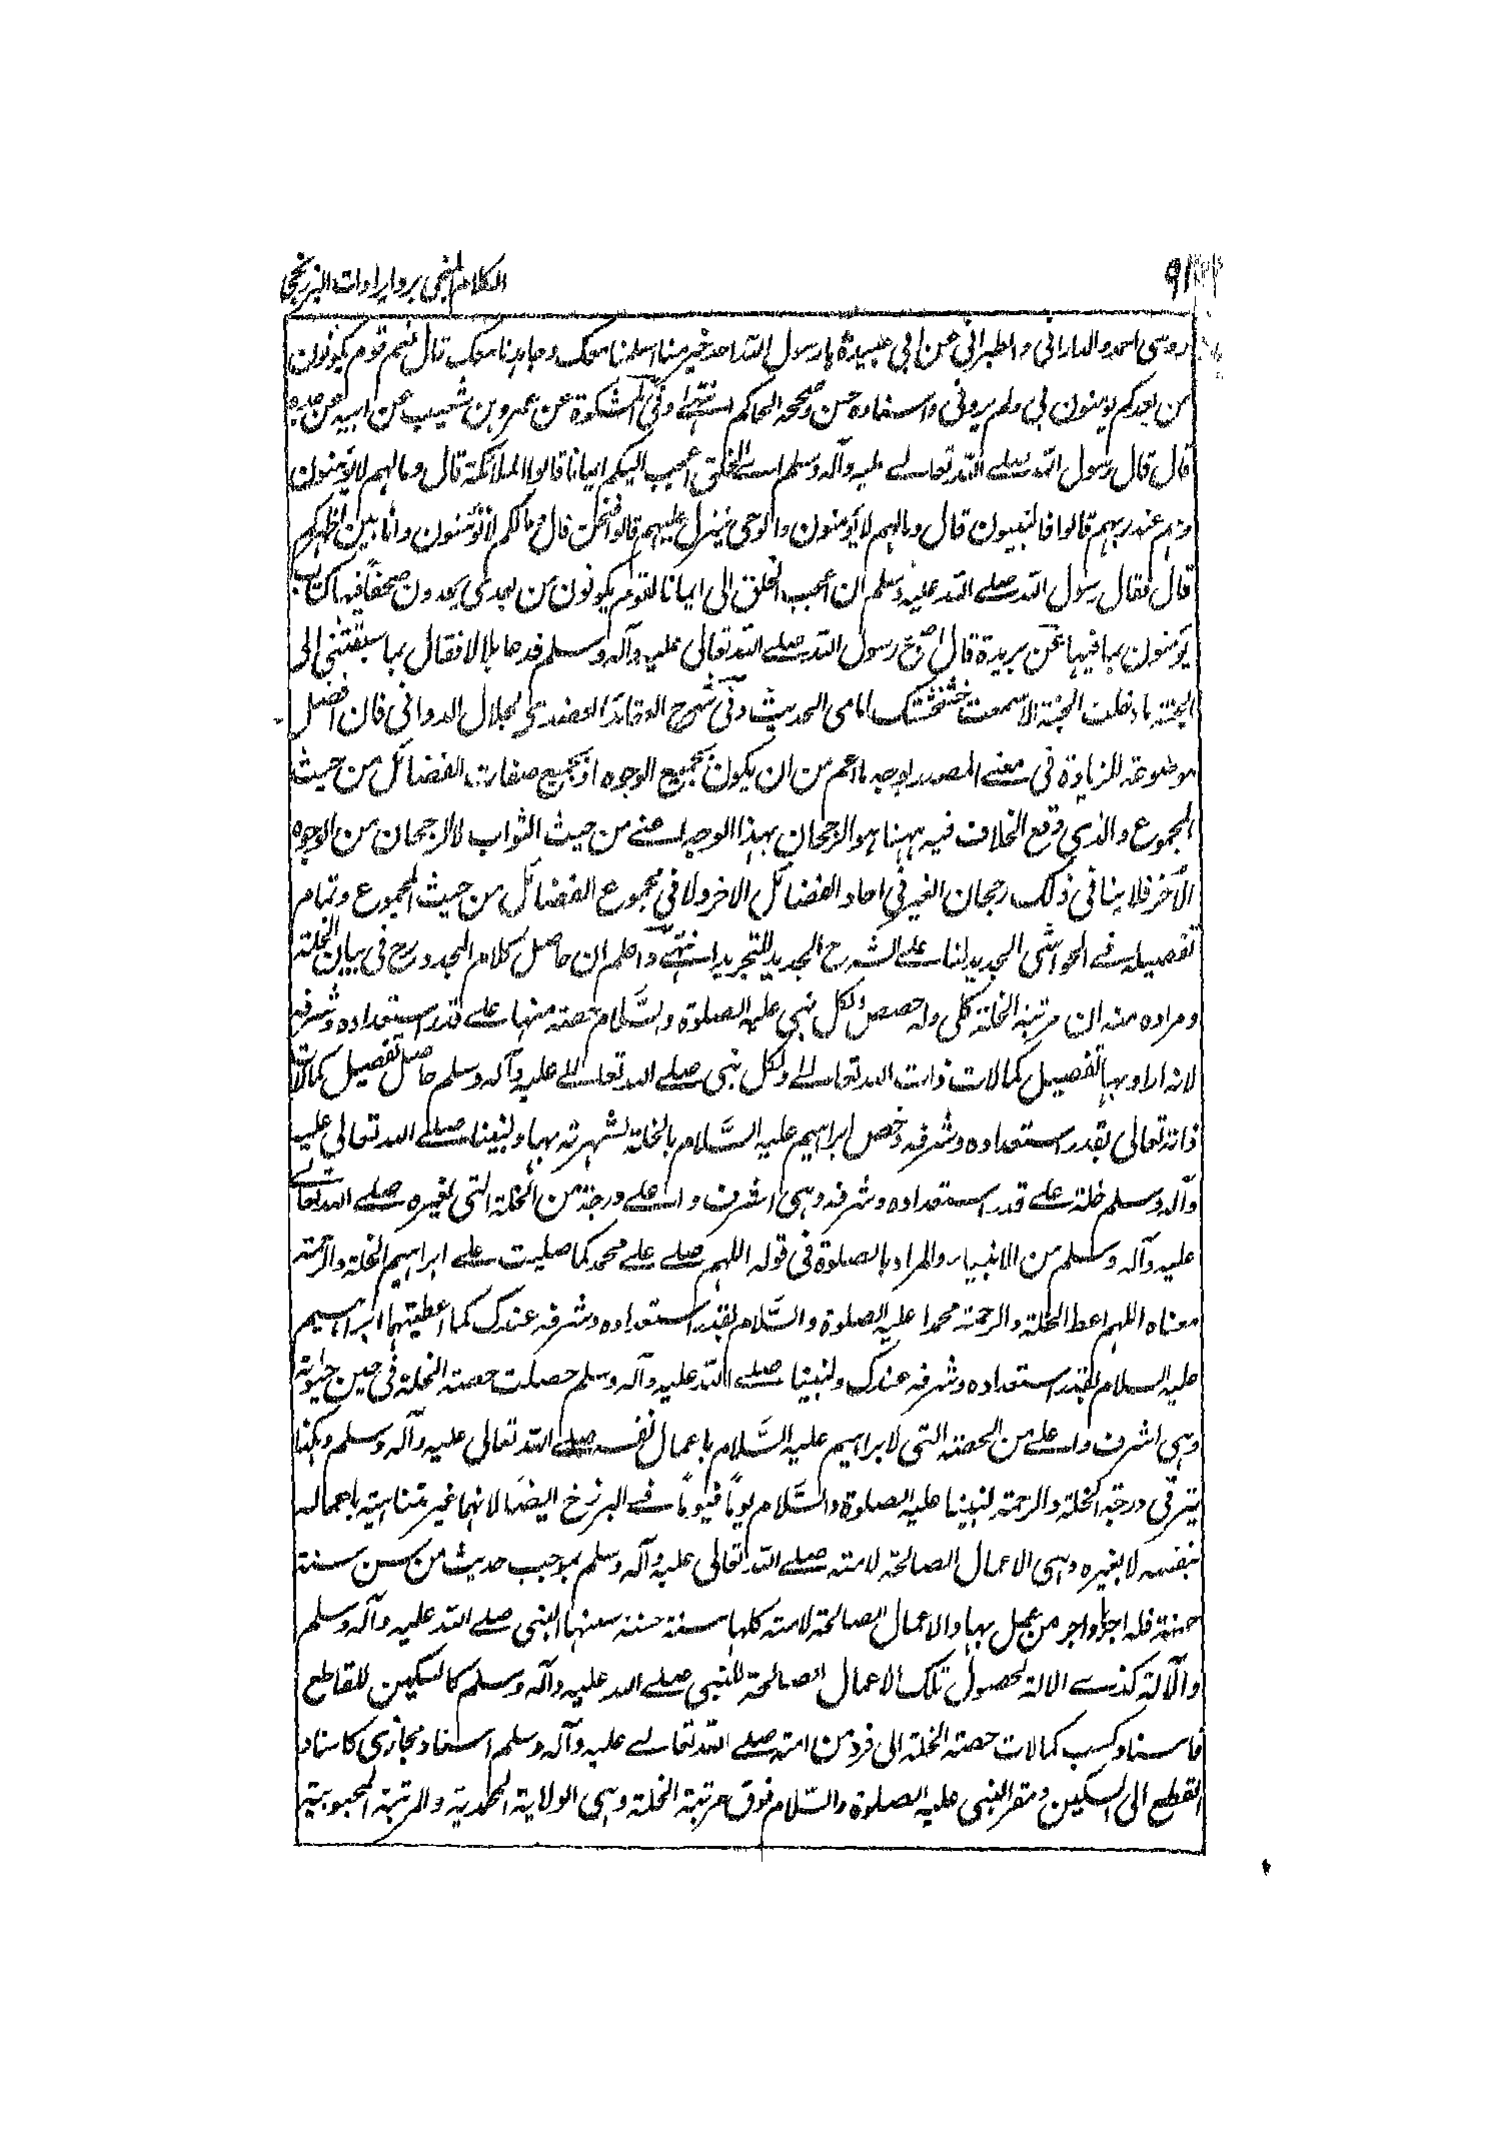 الكلام المنجي برد ايرادات البرزنجي
روى احمد والدارمي والطبراني عن ابي عبيدة يا رسول الله احد خير منا اسلمنا معك وجاهدنا معك قال نعم قوم يكونون
من بعدكم يومنون بي ولم يروني واسناده حسن وصححه الحاكم انتهى وفي المشكوة عن عمرو بن شعيب عن ابيه عن جده
قال قال رسول الله صلے الله تعالے عليه وآله وسلم اي الخلق اعجب اليكم ايمانا قالوا الملائكة قال ومالهم لا يؤمنون
وهم عند ربهم قالوا فالنبيون قال ومالهم لا يؤمنون والوحي ينزل عليهم قالوا فنحن قال ومالكم لا تؤمنون وانا بين اظهركم
قال فقال رسول الله صلے الله عليه وسلم ان اعجب الخلق الى ايمانا لقوم يكونون من بعدي يجدون صحفا فيها كتاب
يؤمنون بما فيها عن بريدة قال اصبح رسول الله صلے الله تعالى عليه وآله وسلم فدعا بلالا فقال بما سبقتني الى
الجنة ما دخلت الجنة الا سمعت خشخشتك امامي الحديث وفي شرح العقائد العضدي لجلال الدواني فان افضل
موضوعة للزيادة في معنے المصدر بوجه ما اعم من ان يكون بجميع الوجوه او بجميع صفات الفضائل من حيث
المجموع والذي وقع الخلاف فيه ههنا هو الرجحان بهذا الوجه اعنے من حيث الثواب لا الرجحان من الوجوه
الآخر فلا ينافي ذلك رجحان الغير في احاد الفضائل الاخر ولا في مجموع الفضائل من حيث المجموع وتمام
تفصيله فے الحواشي الجديد لنا علے الشرح الجديد للتجريد انتهى واعلم ان حاصل كلام المجدد رح في بيان الخلة
ومراده منه ان مرتبة الخلة كلي وله حصص ولكل نبي عليه الصلوة والسَّلام حصة منها علے قدر استعداده وشرفه
لانه اراد بها تفصيل كمالات ذات الله تعالے ولكل نبي صلے الله تعالے عليه وآله وسلم حاصل تفصيل كمالات
ذاته تعالى بقدر استعداده وشرفه وخص ابراهيم عليه السَّلام بالخلة لشهرته بها ولنبينا صلے الله تعالى عليه
وآله وسلم خلة علے قدر استعداده وشرفه وهي اشرف واعلے درجة من الخلة التي لغيره صلے الله تعالے
عليه وآله وسلم من الانبياء والمراد بالصلوة في قوله اللهم صلے علے محمد كما صليت علے ابراهيم الخلة والرحمة
معناه اللهم اعط الخلة والرحمة محمدا عليه الصلوة والسَّلام بقدر استعداده وشرفه عندك كما اعطيتها ابراهيم
عليه السلام بقدر استعداده وشرفه عندك ولنبينا صلے الله عليه وآله وسلم حصلت حصة الخلة في حين حيوته
وهي اشرف واعلے من الحصة التي لابراهيم عليه السَّلام باعمال نفسه صلے الله تعالى عليه وآله وسلم وهكذا
يترقى درجة الخلة والرحمة لنبينا عليه الصلوة والسَّلام يوماً فيوماً فے البرزخ ايضا لانها غير متناهية باعماله
بنفسه لا بغيره وهي الاعمال الصالحة لامته صلے الله تعالى عليه وآله وسلم بموجب حديث من سن سنة
حسنة فله اجرها واجر من عمل بها والاعمال الصالحة لامته كلها سنة حسنة سنها النبي صلے الله عليه وآله وسلم
والآلة كذي الالة لحصول تلك الاعمال الصالحة للنبي صلے الله عليه وآله وسلم كالسكين للقاطع
فاسناد كسب كمالات حصة الخلة الى فرد من امته صلے الله تعالے عليه وآله وسلم اسناد مجازي كاسناد
القطع الى السكين ومقر النبي عليه الصلوة والسَّلام فوق مرتبة الخلة وهي الولاية المحمدية والمرتبة المحبوبية